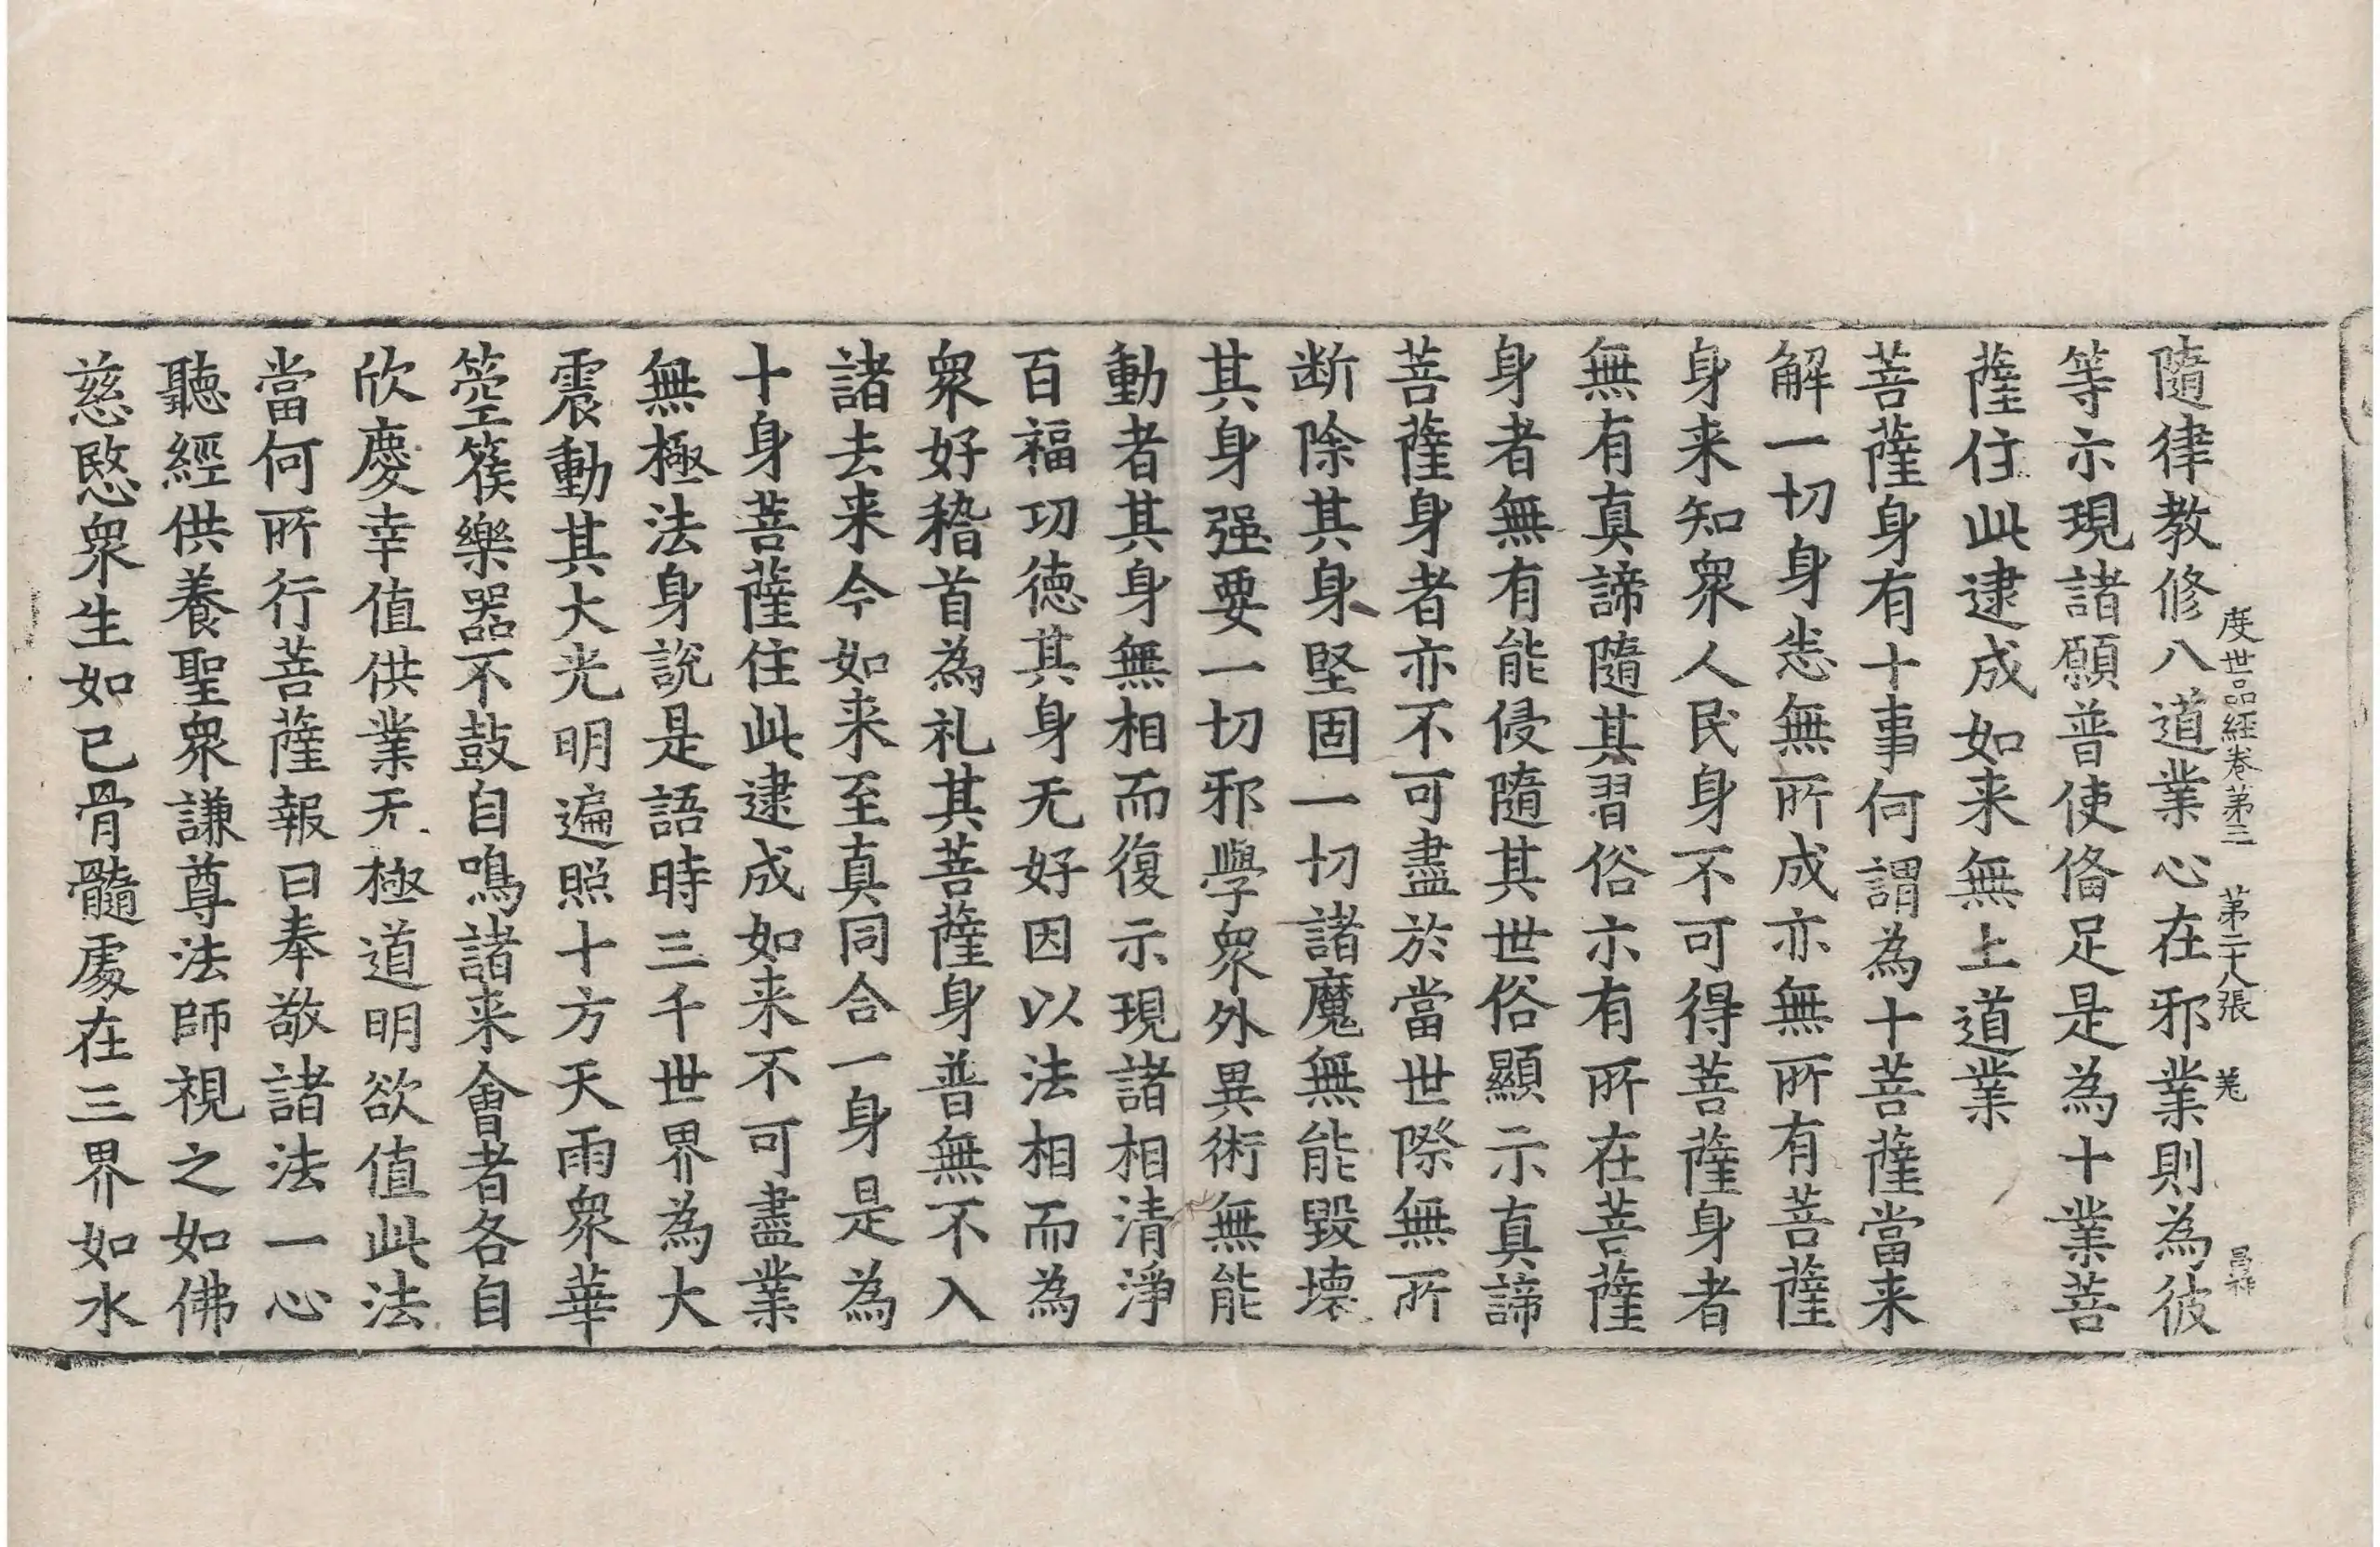 度世品經卷第三　第二十八張　羌　昌神
隨律教修八道業心在邪業則為彼
等示現諸願普使俻足是為十業菩
薩住此逮成如来無上道業
菩薩身有十事何謂為十菩薩當来
解一切身悉無所成亦無所有菩薩
身来知衆人民身不可得菩薩身者
無有真諦隨其習俗亦有所在菩薩
身者無有能侵隨其世俗顯示真諦
菩薩身者亦不可盡於當世際無所
断除其身堅固一切諸魔無能毀壞
其身强要一切邪學衆外異術無能
動者其身無相而復示現諸相清淨
百福功德其身无好因以法相而為
衆好稽首為礼其菩薩身普無不入
諸去来今如来至真同合一身是為
十身菩薩住此逮成如来不可盡業
無極法身說是語時三千世界為大
震動其大光明遍照十方天雨衆華
箜篌樂器不鼓自鳴諸来會者各自
欣慶幸值供業无極道明欲值此法
當何所行菩薩報曰奉敬諸法一心
聽經供養聖衆謙尊法師視之如佛
慈愍衆生如己骨髓處在三界如水